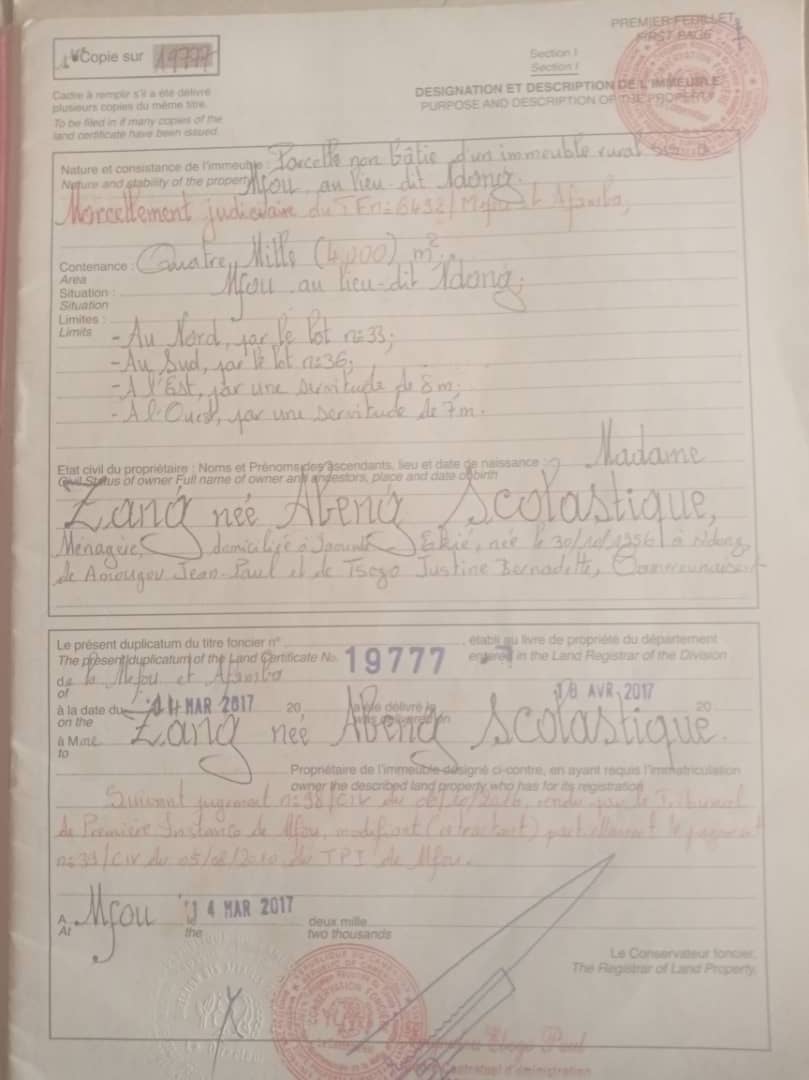 PREMIER FEUILLET
FIRST PAGE
Copie sur 19777
Section I
Section I
Cadre à remplir s'il a été délivré
plusieurs copies du même titre.
To be filed in if many copies of the
land certificate have been issued.
DESIGNATION ET DESCRIPTION DE L'IMMEUBLE
PURPOSE AND DESCRIPTION OF THE PROPERTY
Nature et consistance de l'immeuble : Parcelle non bâtie d'un immeuble rural sis à
Nature and stability of the property Mfou au lieu dit Ndong.
Morcellement judiciaire du TF n=6432/Mefou et Afamba,
Contenance : Quatre Mille (4,000) m²
Area
Situation : Mfou au lieu-dit Ndong;
Situation
Limites :
Limits
- Au Nord, par le lot n=33;
- Au Sud, par le lot n=36;
- A l'Est, par une servitude de 8m;
- A l'Ouest, par une servitude de 7m.
Etat civil du propriétaire : Noms et Prénoms des ascendants, lieu et date de naissance : Madame
Civil Status of owner Full name of owner and ancestors, place and date of birth
Zang née Abeng Scolastique,
Ménagère, domiciliée à Yaoundé Ekié, née le 30/10/1956 à Ndong,
de Amougou Jean-Paul et de Tsogo Justine Bernadette, Camerounaise
Le présent duplicatum du titre foncier n° établi au livre de propriété du département
The present duplicatum of the Land Certificate No. 19777 entered in the Land Registrar of the Division
de la Mefou et Afamba
of
à la date du 14 MAR 2017 20 a été délivré le 18 AVR. 2017 20
on the was delivered on
à Mme Zang née Abeng Scolastique.
to
Propriétaire de l'immeuble désigné ci-contre, en ayant requis l'immatriculation
owner the described land property who has for its registration
Suivant jugement n=38/CIV du 06/10/2016, rendu par le Tribunal
de Première Instance de Mfou, modifiant (rétractant) partiellement le jugement
n=39/CIV du 05/08/2010 du TPI de Mfou.
A Mfou 14 MAR 2017 deux mille
At the two thousands
Le Conservateur foncier,
The Registrar of Land Property,
Paul
d'administration